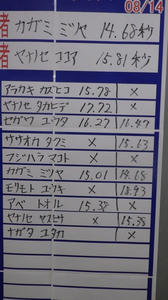 08/14
者 カガミ ミツヤ 14.68秒
者 ヤナセ ココア 15.81秒
アラカキ カズヒコ 15.78 ×
ヤナセ タカヒデ 17.72 ×
セガワ ユウタ 16.27 16.47
ウサオカ タクミ × 15.63
フジハラ マコト × ×
カガミ ミツヤ 15.01 14.68
モリモト ユウキ × 18.93
アベ トオル 15.38 ×
ヤナセ ヤスヒサ × 15.38
ナガタ ユタカ × ×